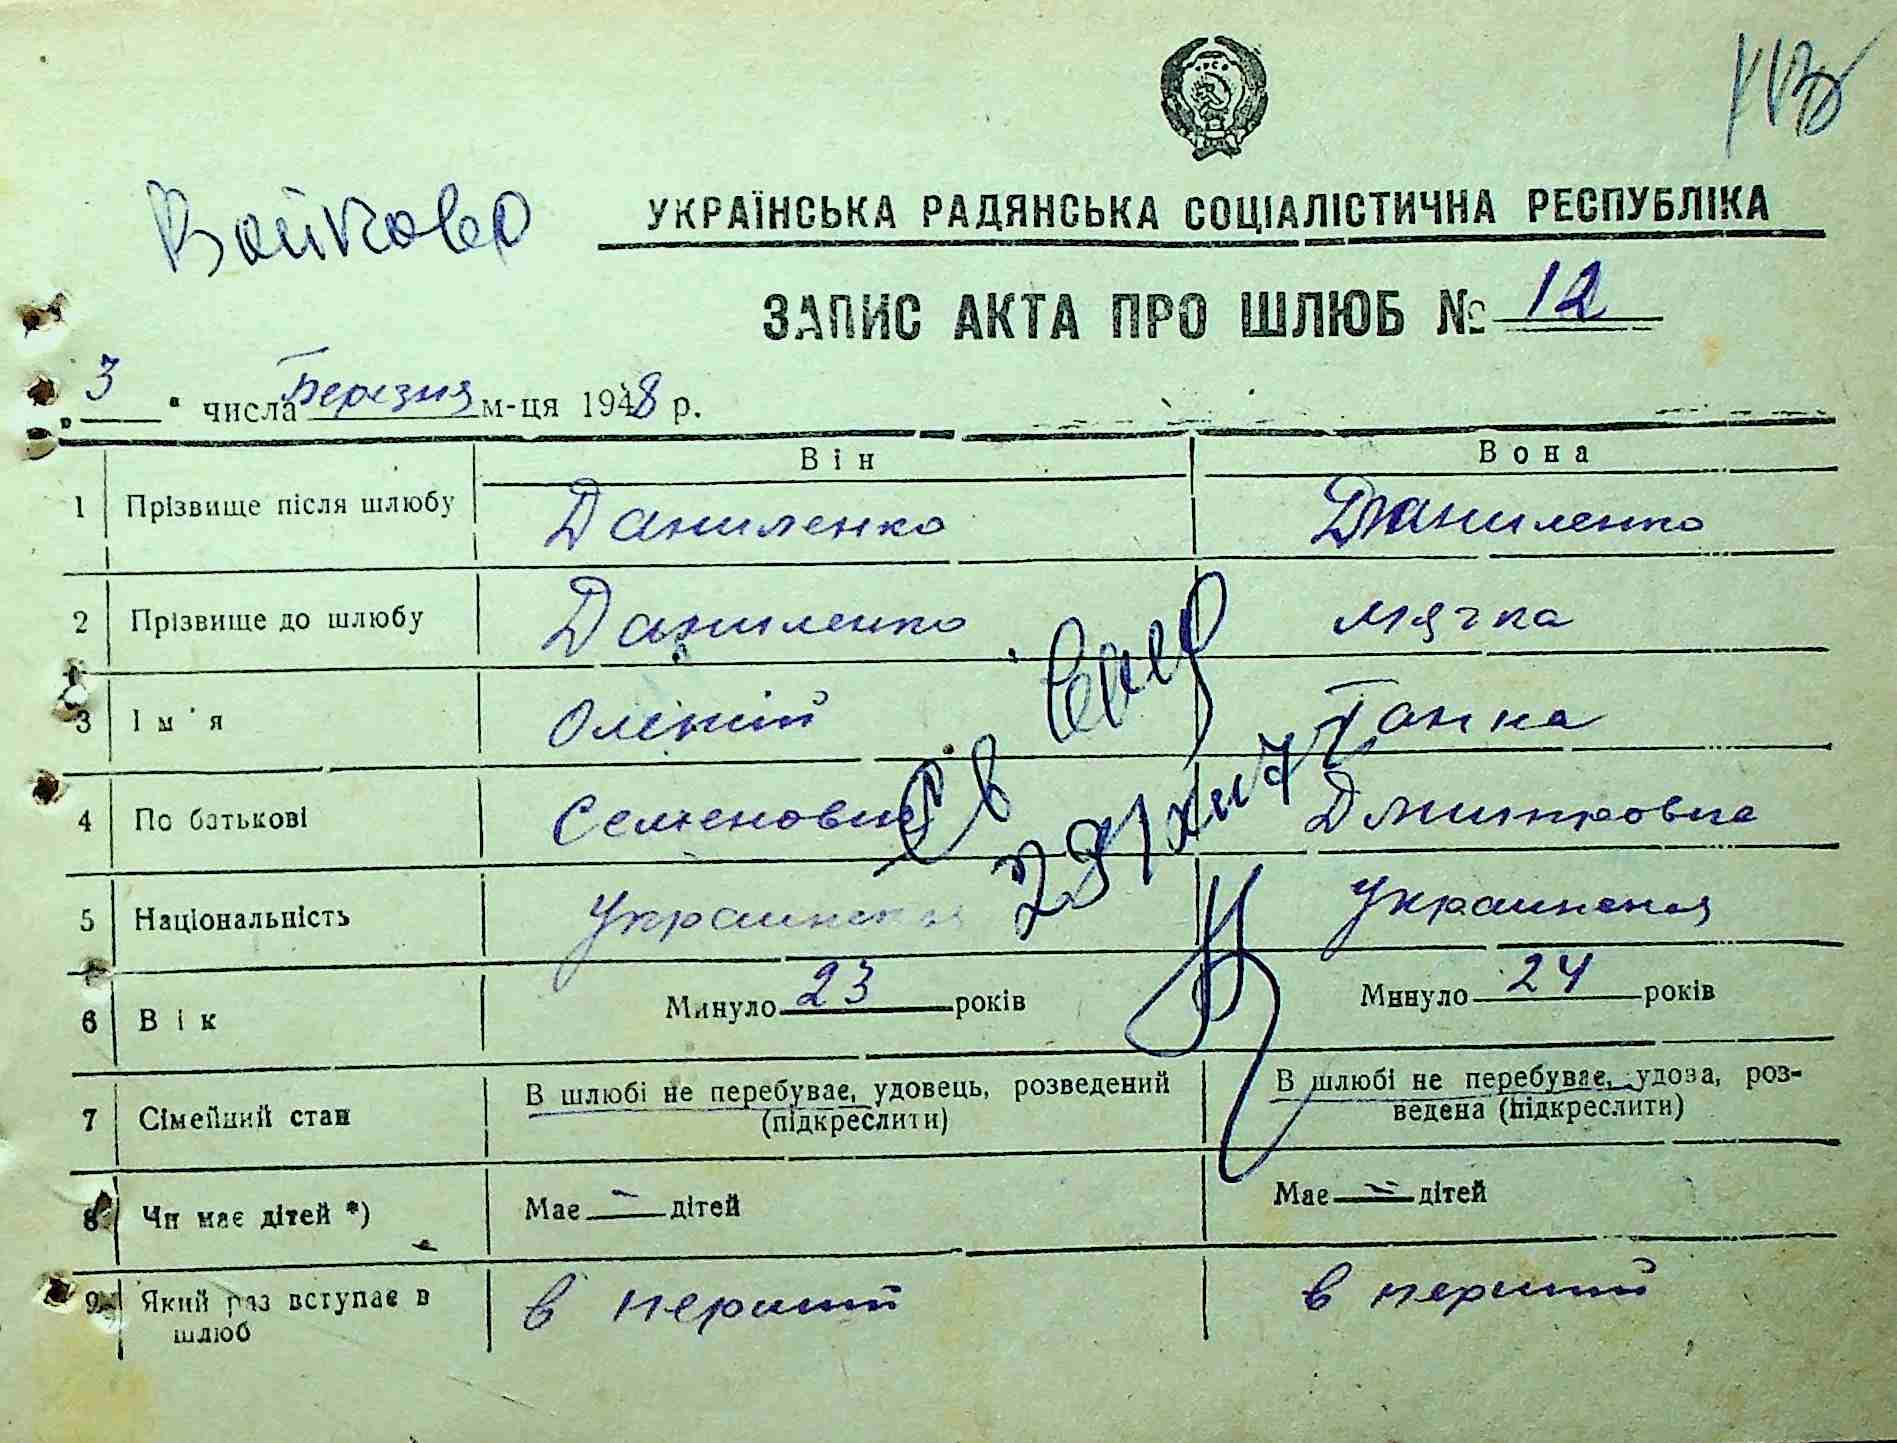 Войково
УКРАЇНСЬКА РАДЯНСЬКА СОЦІАЛІСТИЧНА РЕСПУБЛІКА
ЗАПИС АКТА ПРО ШЛЮБ № 12
„3" числа Березня м-ця 1948 р.
Він Вона
1 Прізвище після шлюбу Даниленко Даниленко
2 Прізвище до шлюбу Даниленко Мячка
3 Ім'я Олексій Ганна
4 По батькові Семенович Дмитровна
5 Національність Украинская Украинская
6 Вік Минуло 23 років Минуло 24 років
7 Сімейний стан В шлюбі не перебуває, удовець, розведений (підкреслити) В шлюбі не перебуває, удова, роз-
ведена (підкреслити)
8 Чи має дітей *) Має — дітей Має — дітей
9 Який раз вступає в шлюб в перший в перший